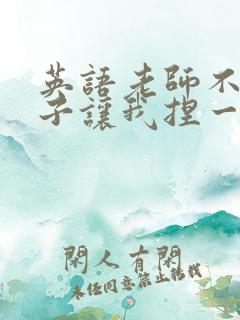 英語老師不
子讓我捏一
閑人有閑
未經同意禁止轉載